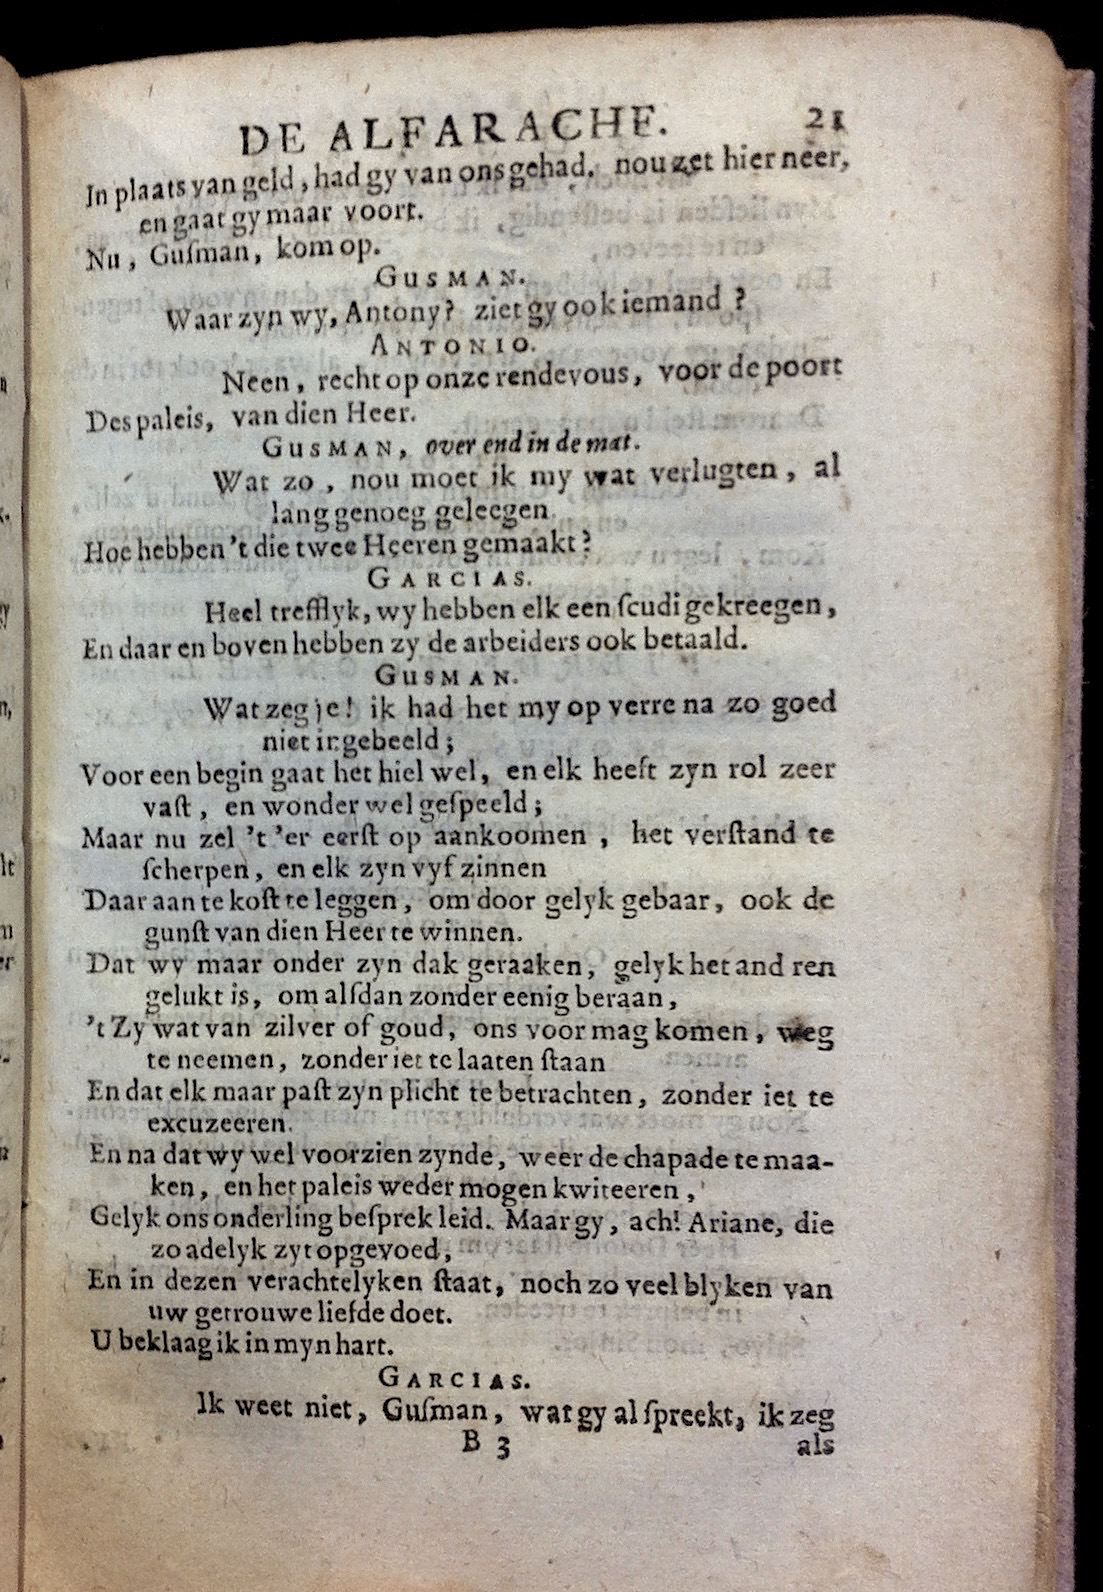 DE ALFARACHE. 21
In plaats van geld, had gy van ons gehad. nou zet hier neer,
en gaat gy maar voort.
Nu, Guſman, kom op.
GUSMAN.
Waar zyn wy, Antony? ziet gy ook iemand?
ANTONIO.
Neen, recht op onze rendevous, voor de poort
Des paleis, van dien Heer.
GUSMAN, over end in de mat.
Wat zo, nou moet ik my wat verlugten, al
lang genoeg geleegen
Hoe hebben 't die twee Heeren gemaakt?
GARCIAS.
Heel trefflyk, wy hebben elk een ſcudi gekreegen,
En daar en boven hebben zy de arbeiders ook betaald.
GUSMAN.
Wat zeg je! ik had het my op verre na zo goed
niet ingebeeld;
Voor een begin gaat het hiel wel, en elk heeft zyn rol zeer
vaſt, en wonder wel geſpeeld;
Maar nu zel 't 'er eerſt op aankoomen, het verſtand te
ſcherpen, en elk zyn vyf zinnen
Daar aan te koſt te leggen, om door gelyk gebaar, ook de
gunſt van dien Heer te winnen.
Dat wy maar onder zyn dak geraaken, gelyk het and ren
gelukt is, om alſdan zonder eenig beraan,
't Zy wat van zilver of goud, ons voor mag komen, weg
te neemen, zonder iet te laaten ſtaan
En dat elk maar paſt zyn plicht te betrachten, zonder iet te
excuzeeren.
En na dat wy wel voorzien zynde, weer de chapade te maa-
ken, en het paleis weder mogen kwiteeren,
Gelyk ons onderling beſprek leid. Maar gy, ach! Ariane, die
zo adelyk zyt opgevoed,
En in dezen verachtelyken ſtaat, noch zo veel blyken van
uw getrouwe liefde doet.
U beklaag ik in myn hart.
GARCIAS.
Ik weet niet, Guſman, wat gy al ſpreekt, ik zeg
B 3 als